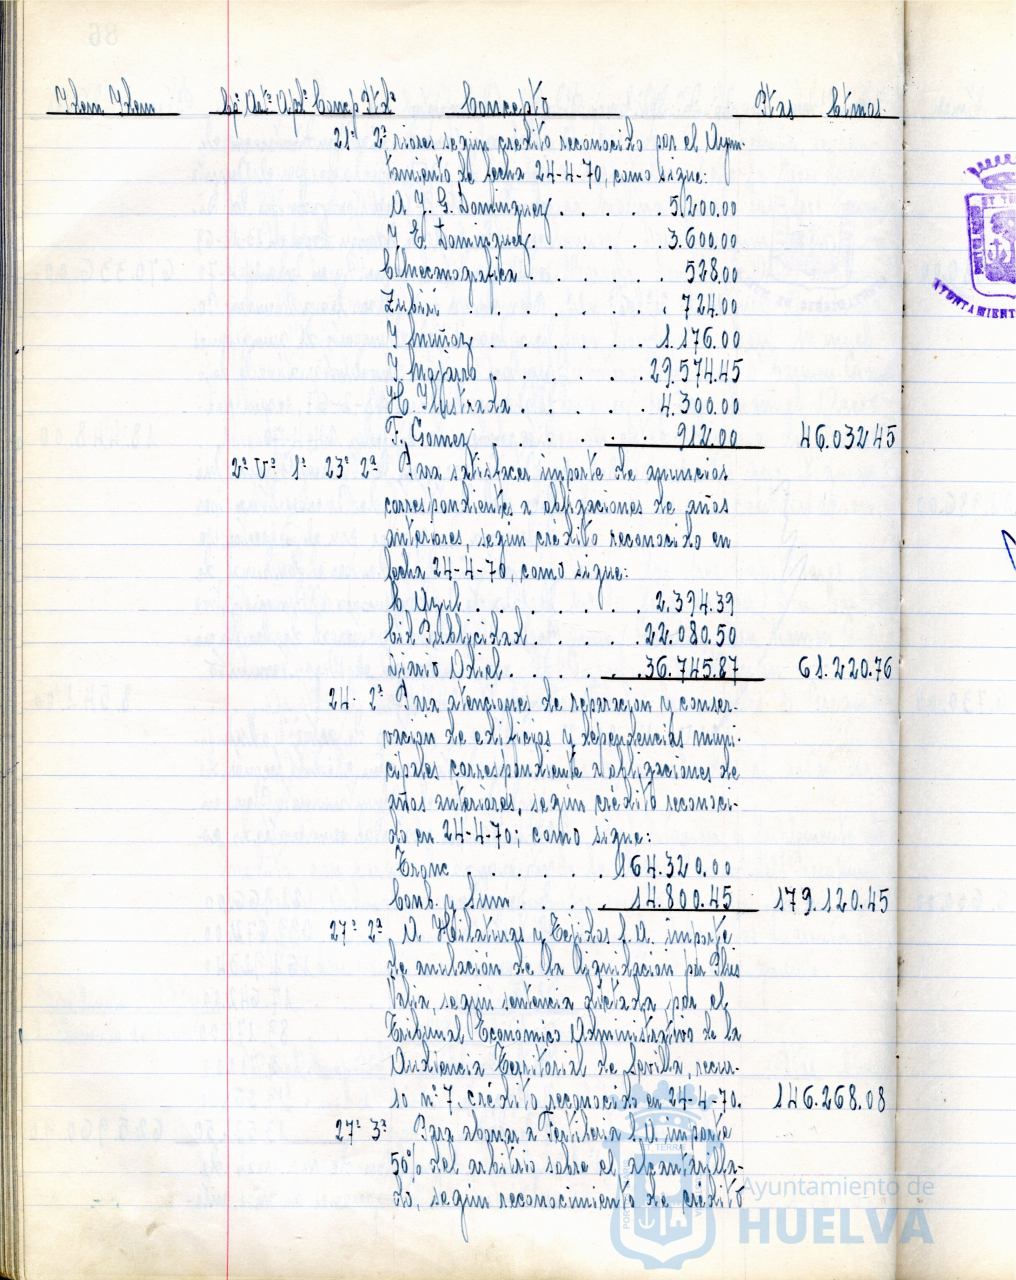 Idem Idem Cp: Artº Apº Concp Ptdª Concepto Ptas Ctmos.
21: 2ª riores según crédito reconocido por el Ayun-
tamiento de fecha 24-4-70, como sigue:
A J. G. Dominguez . . . 5.200.00
J. E. Dominguez . . . 3.600.00
C. Mecanografica . . . 528.00
Zubiri . . . 724.00
J Muñoz . . . 1.176.00
J . . . 29.574.45
H. Ilustrada . . . 4.300.00
F. Gomez . . . 912.00 46.032.45
2ª Vª 1ª 23ª 2ª Para satisfacer importe de anuncios
correspondiente a obligaciones de años
anteriores, según crédito reconocido en
fecha 24-4-70, como sigue:
C. Azul . . . 2.394.39
Publicidad . . . 22.080.50
Diario Odiel . . . 36.745.87 61.220.76
24 2ª Para atenciones de reparacion y conser-
vacion de edificios y dependencias muni-
cipales correspondiente a obligaciones de
años anteriores, según crédito reconoci-
do en 24-4-70; como sigue:
. . . 164.320.00
Cons. y Sum . . . 14.800.45 179.120.45
27ª 2ª A Hilaturas y Tejidos S.A. importe
de anulación de la liquidacion por Plus
Valia, según sentencia dictada por el
Tribunal Económico Administrativo de la
Audiencia Territorial de Sevilla, recur-
so nº 7, crédito reconocido en 24-4-70. 146.268.08
27ª 3ª Para abonar a S.A. importe
50% del arbitrio sobre el alcantarilla-
do, según reconocimiento de credito
AYUNTAMIENTO
Ayuntamiento de
HUELVA